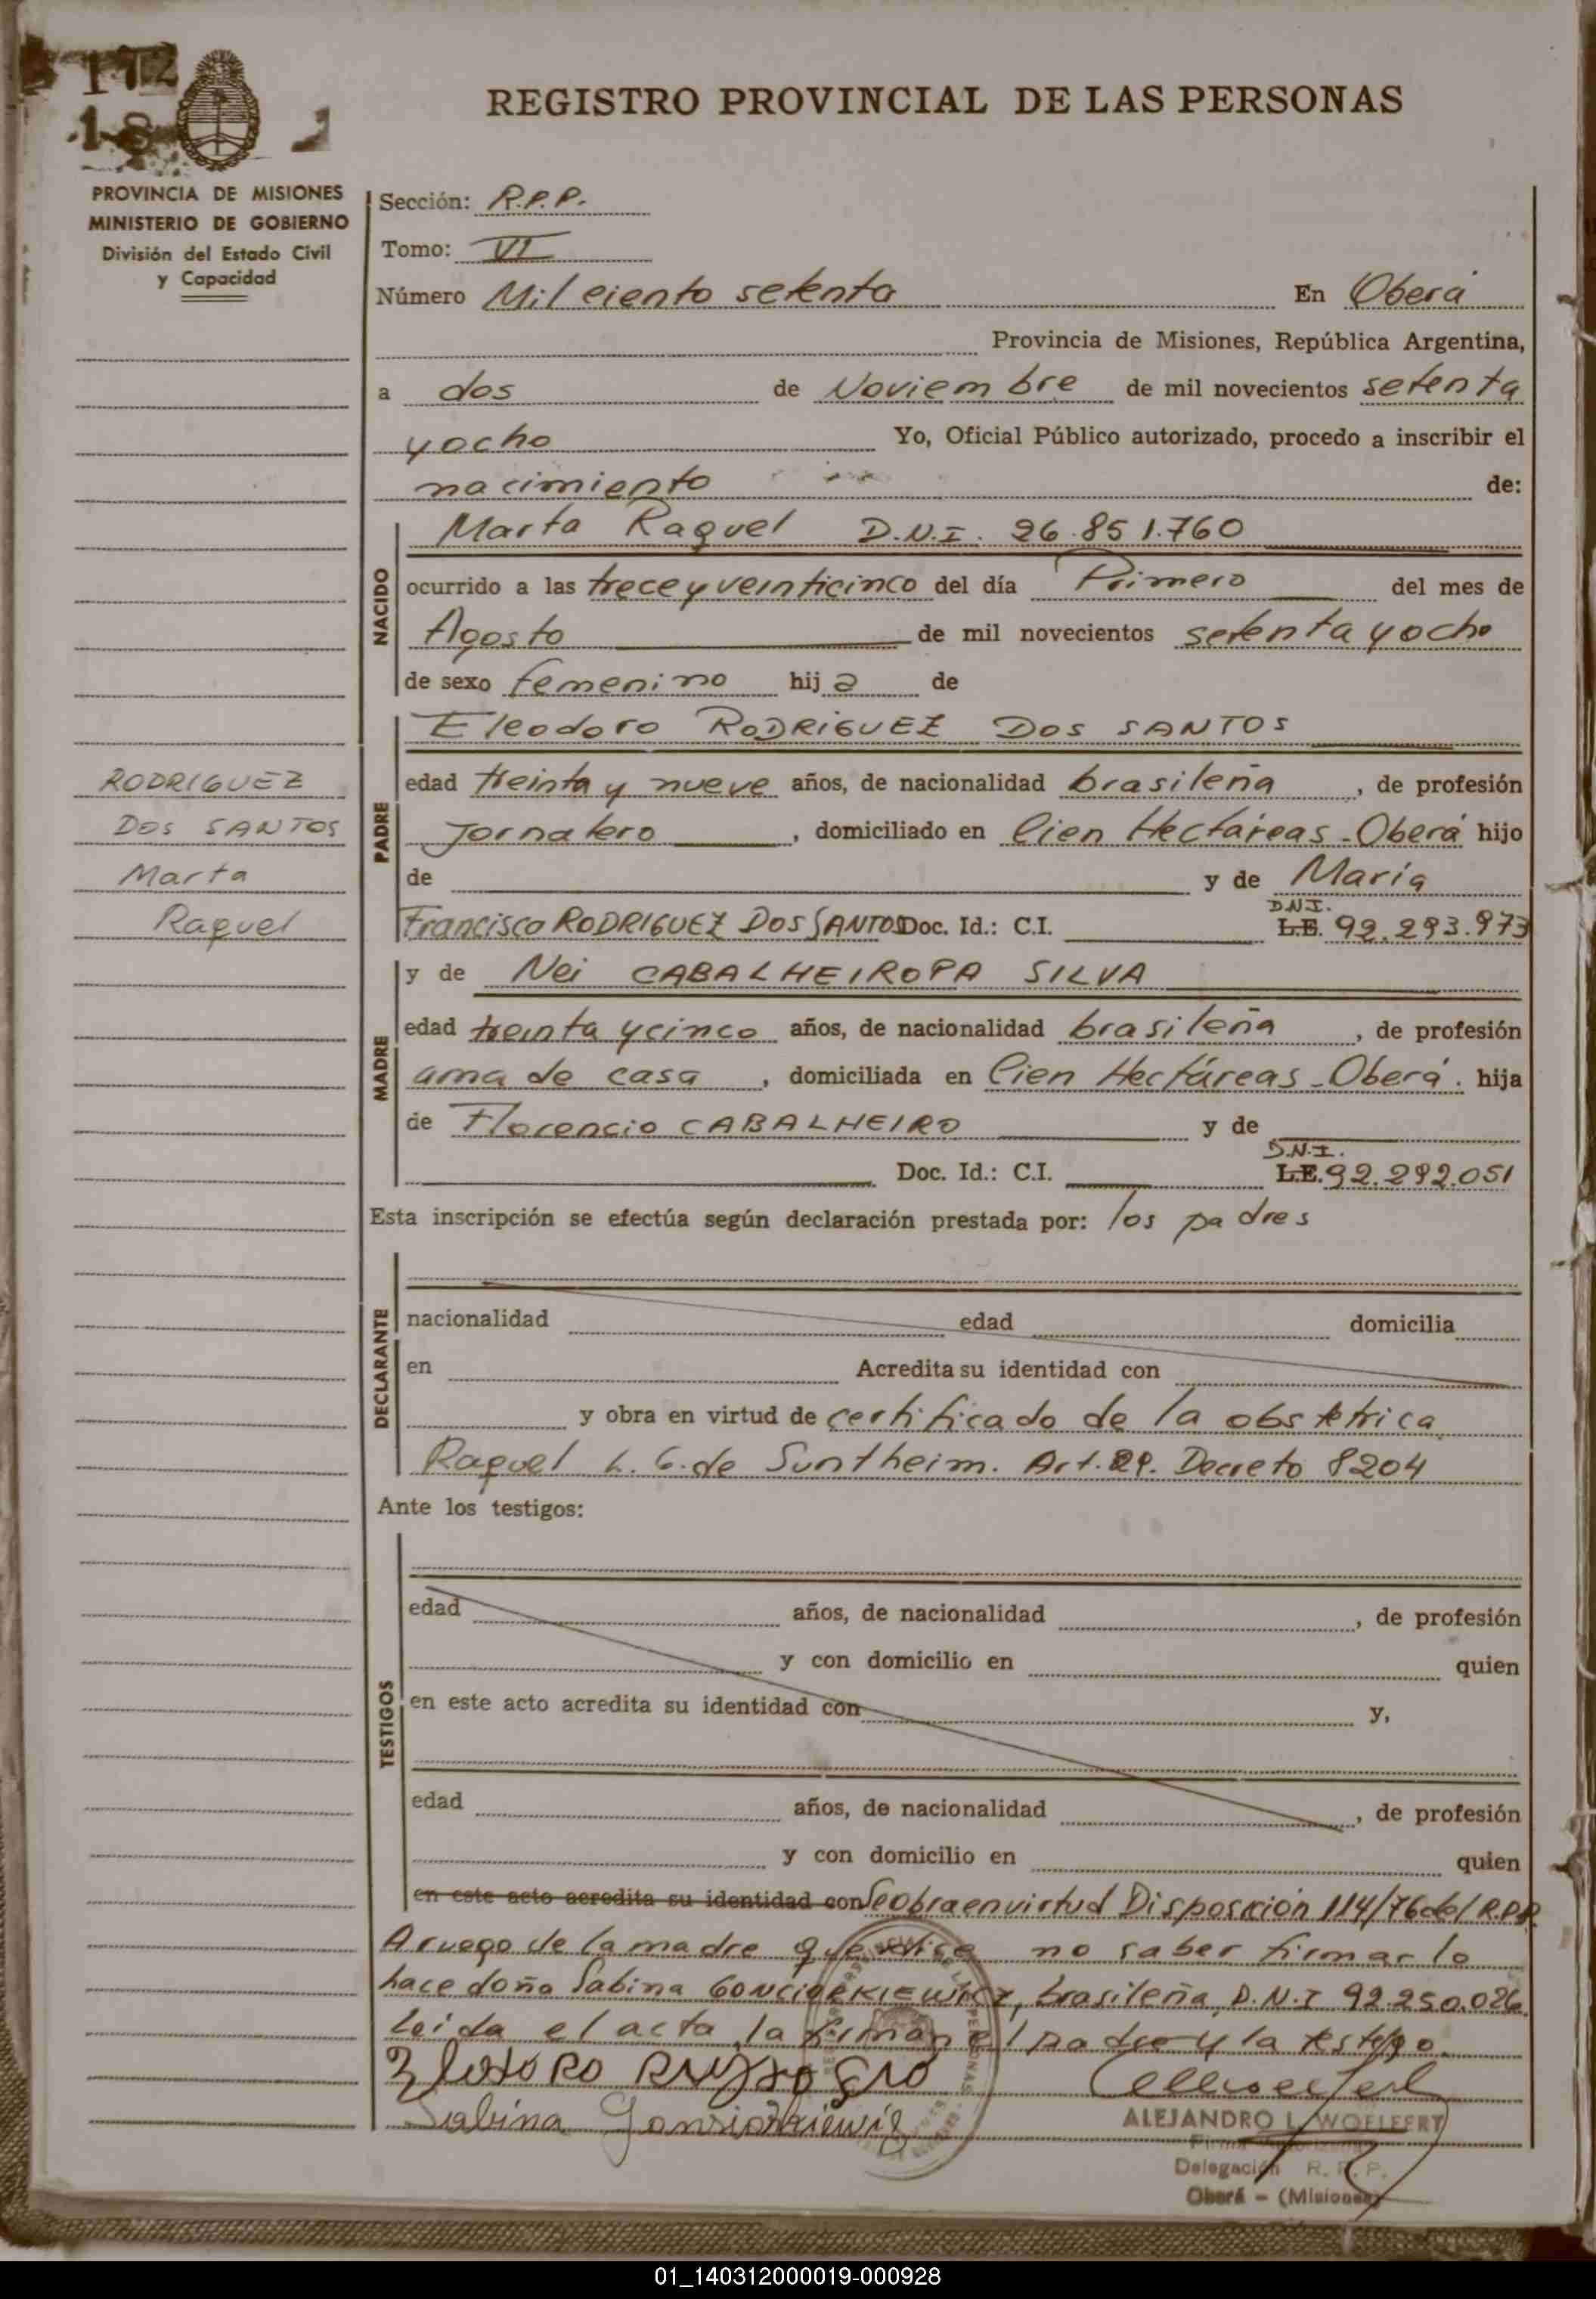 172
REGISTRO PROVINCIAL DE LAS PERSONAS
PROVINCIA DE MISIONES
MINISTERIO DE GOBIERNO
División del Estado Civil
y Capacidad
Sección: R.P.P.
Tomo: VI
Número Mil ciento setenta En Oberá
Provincia de Misiones, República Argentina,
a dos de Noviembre de mil novecientos setenta
y ocho Yo, Oficial Público autorizado, procedo a inscribir el
nacimiento de:
NACIDO
Marta Raquel D.N.I. 26.851.760
ocurrido a las trece y veinticinco del día Primero del mes de
Agosto de mil novecientos setenta y ocho
de sexo femenino hij a de
PADRE
Eleodoro RODRIGUEZ DOS SANTOS
edad treinta y nueve años, de nacionalidad brasileña, de profesión
Jornalero, domiciliado en Cien Hectáreas - Oberá hijo
de y de María
Francisco RODRIGUEZ DOS SANTOS Doc. Id.: C.I. L.E. D.N.I. 92.293.973
RODRIGUEZ
DOS SANTOS
Marta
Raquel
MADRE
y de Nei CABALHEIRO PA SILVA
edad treinta y cinco años, de nacionalidad brasileña, de profesión
ama de casa, domiciliada en Cien Hectáreas - Oberá. hija
de Florencio CABALHEIRO y de
Doc. Id.: C.I. L.E. D.N.I. 92.292.051
Esta inscripción se efectúa según declaración prestada por: los padres
DECLARANTE
nacionalidad edad domicilia
en Acredita su identidad con
y obra en virtud de certificado de la obstetrica
Raquel L. G. de Suntheim. Art. 29. Decreto 8204
Ante los testigos:
TESTIGOS
edad años, de nacionalidad , de profesión
y con domicilio en quien
en este acto acredita su identidad con y,
edad años, de nacionalidad , de profesión
y con domicilio en quien
en este acto acredita su identidad con Se obra en virtud Disposición 114/76 del R.P.P.
A ruego de la madre que dice no saber firmar lo
hace doña Sabina GONCIORKIEWICZ, brasileña, D.N.I 92.250.026.
Leida el acta, la firman el padre y la testigo.
Sabina
ALEJANDRO L. WOFLFERT
Delegación R. P. P.
Oberá - (Misiones)
01_140312000019-000928